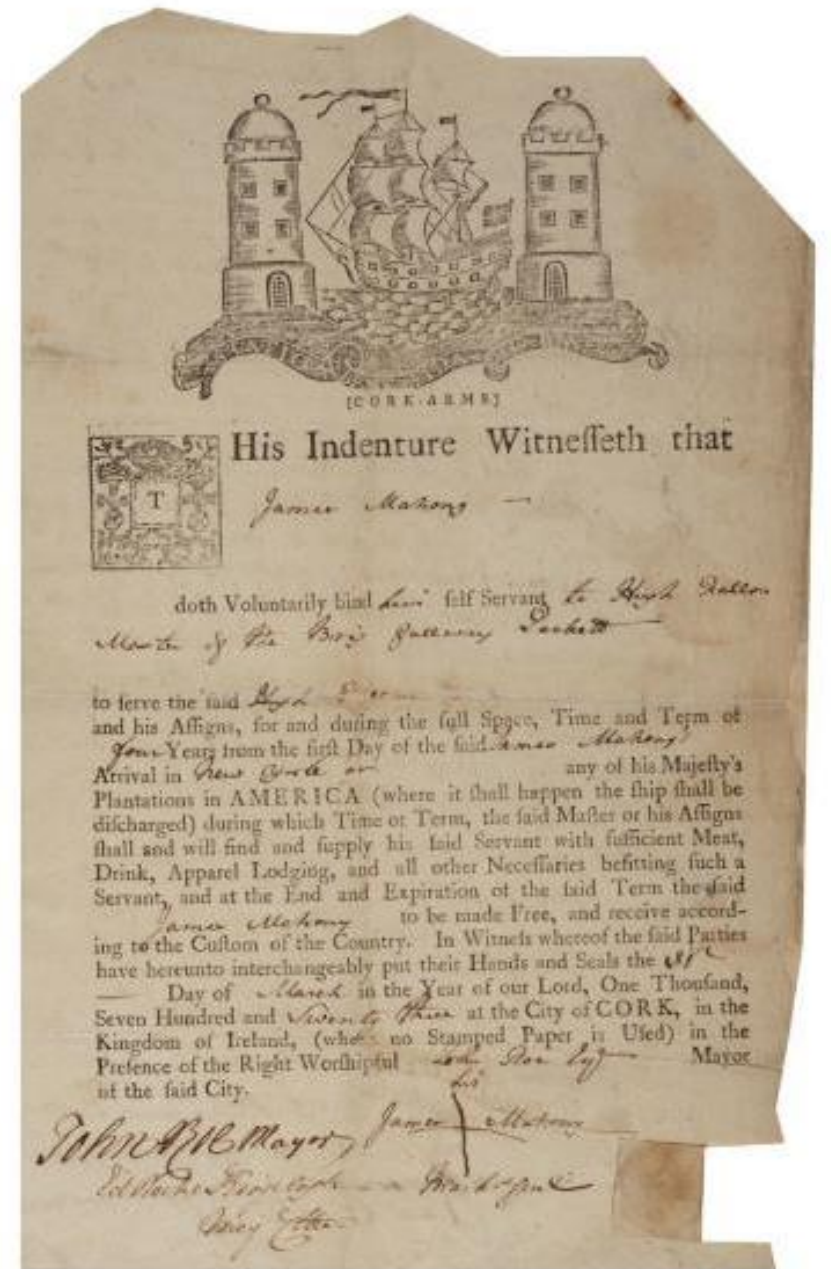 [CORK-ARMS]
T
His Indenture Witneſſeth that
James Mahony —
doth Voluntarily bind him ſelf Servant to Hugh
Master of the Brig
to ſerve the ſaid Hugh
and his Aſſigns, for and during the full Space, Time and Term of
four Years from the firſt Day of the ſaid James Mahony
Arrival in New Castle or any of his Majeſty's
Plantations in AMERICA (where it ſhall happen the ſhip ſhall be
diſcharged) during which Time or Term, the ſaid Maſter or his Aſſigns
ſhall and will find and ſupply his ſaid Servant with ſufficient Meat,
Drink, Apparel Lodging, and all other Neceſſaries befitting ſuch a
Servant, and at the End and Expiration of the ſaid Term the ſaid
James Mahony to be made Free, and receive accord-
ing to the Cuſtom of the Country. In Witneſs whereof the ſaid Parties
have hereunto interchangeably put their Hands and Seals the
— Day of March in the Year of our Lord, One Thouſand,
Seven Hundred and Twenty three at the City of CORK, in the
Kingdom of Ireland, (where no Stamped Paper is Uſed) in the
Preſence of the Right Worſhipful John Roe Mayor
of the ſaid City.
his
John Roe Mayor James Mahony
Mark &